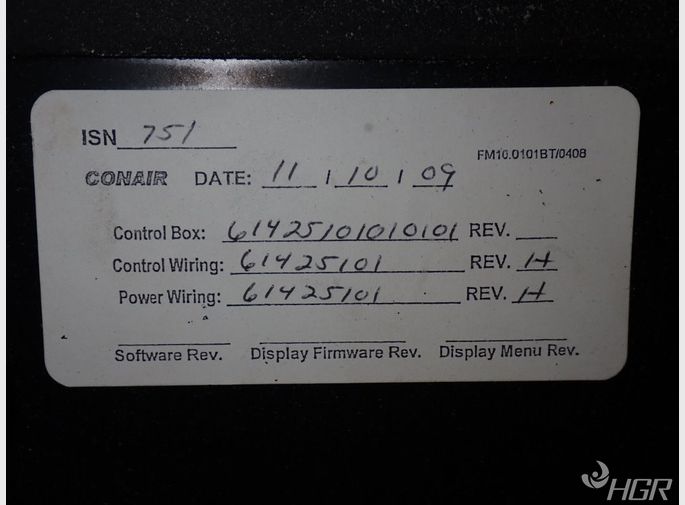 ISN 751
FM10.0101BT/0408
CONAIR DATE: 11 / 10 / 09
Control Box: 61425101010101 REV.
Control Wiring: 61425101 REV. H
Power Wiring: 61425101 REV. H
Software Rev. Display Firmware Rev. Display Menu Rev.
HGR